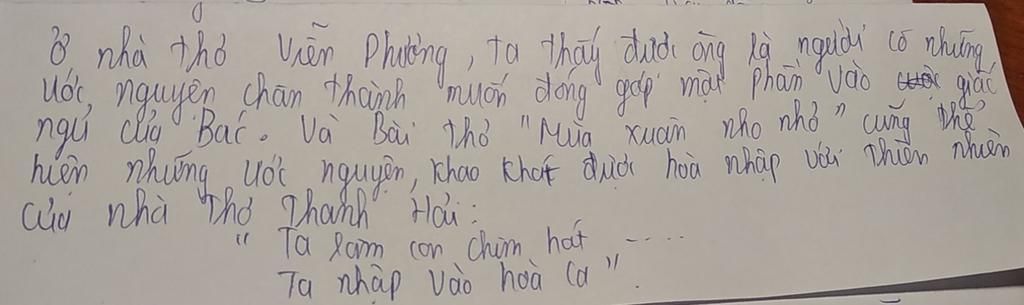 Ở nhà thơ Viễn Phương, ta thấy được ông là người có những
ước nguyện chân thành muốn đóng góp một phần vào giấc
ngủ của Bác. Và Bài thơ "Mùa xuân nho nhỏ" cũng thể
hiện những ước nguyện, khao khát được hoà nhập với thiên nhiên
của nhà thơ Thanh Hải:
" Ta làm con chim hót .....
Ta nhập vào hoà ca".